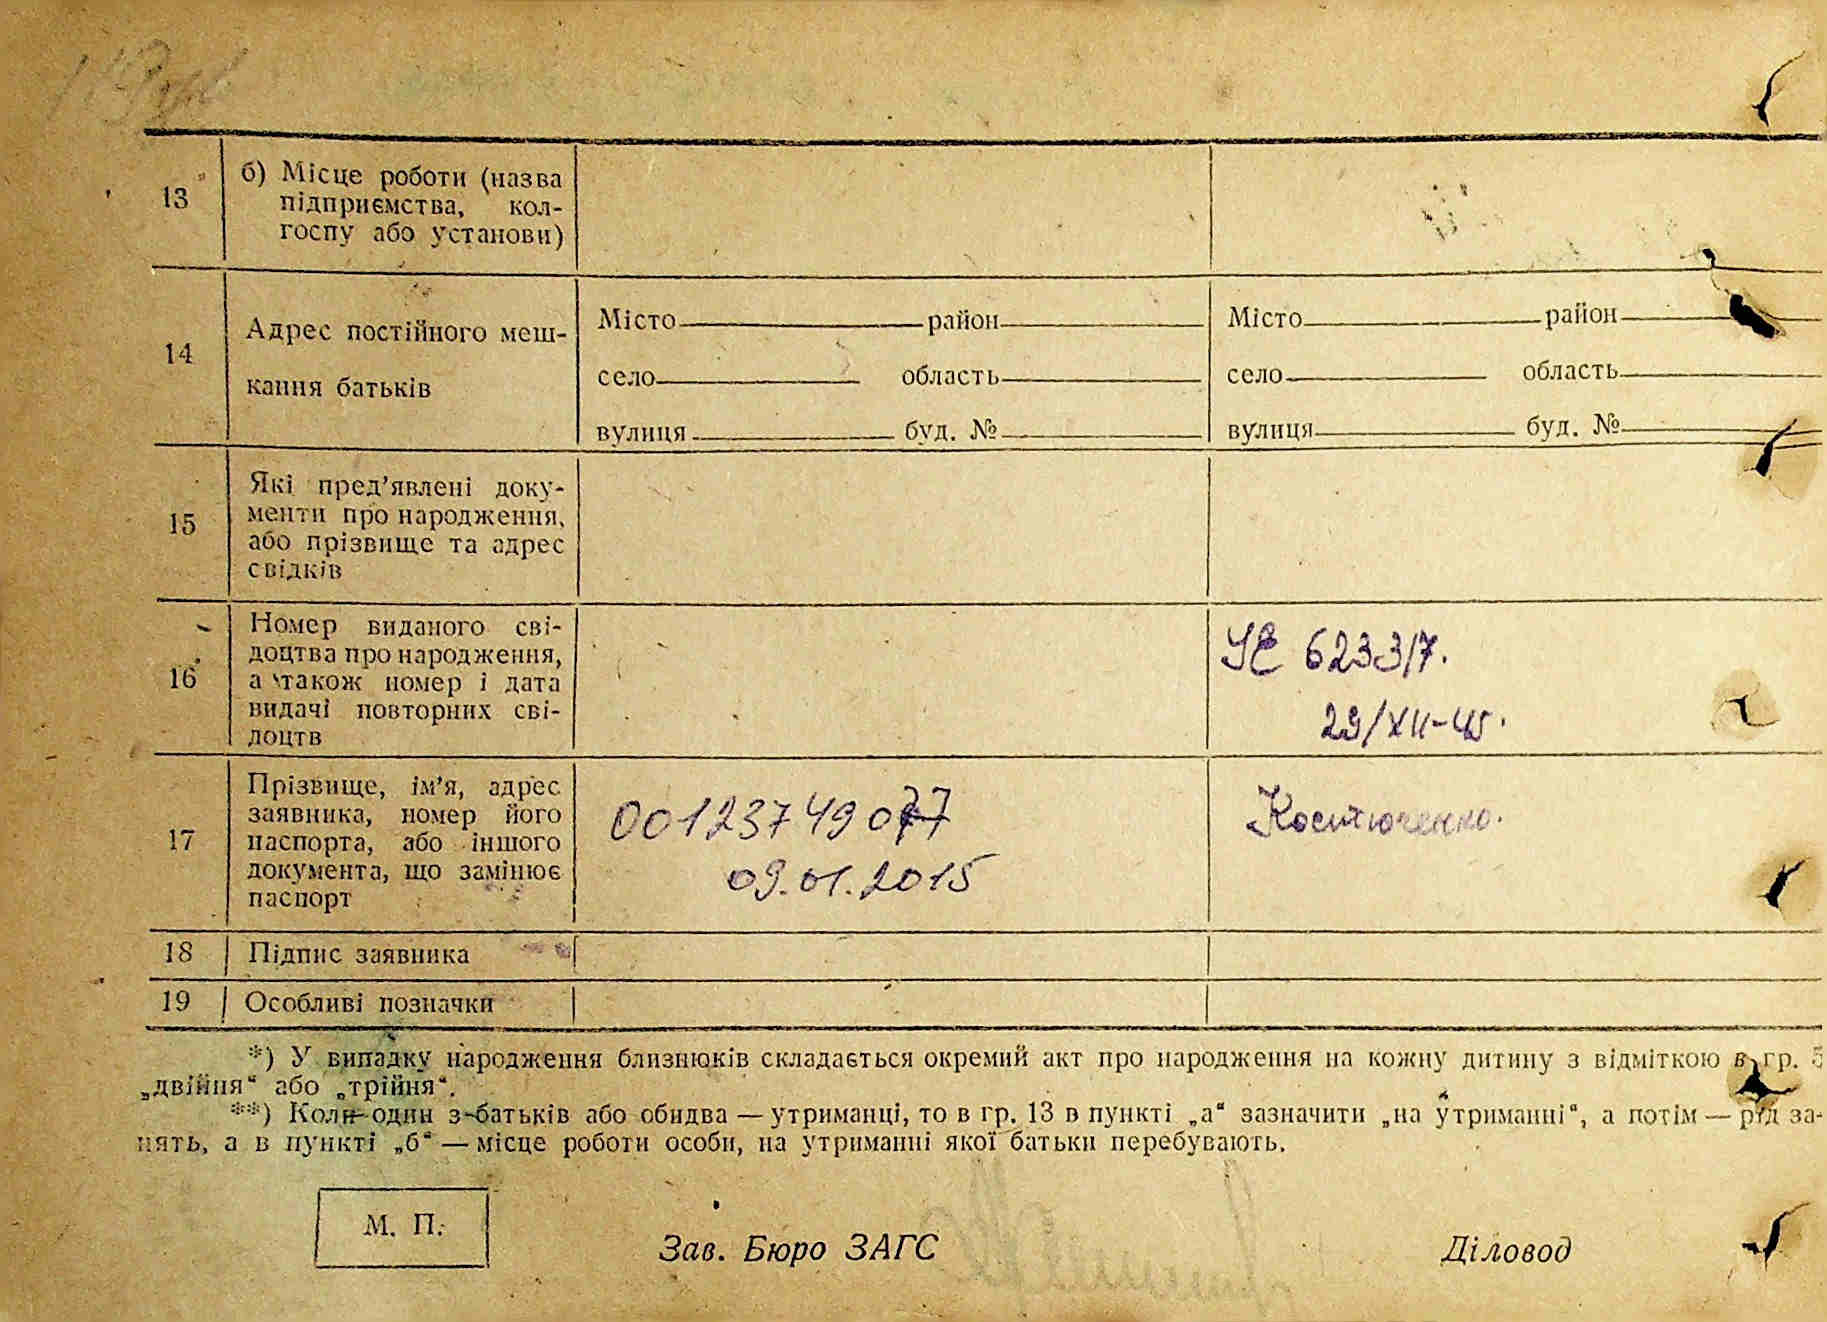 13
б) Місце роботи (назва
підприємства, кол-
госпу або установи)
14
Адрес постійного меш-
кання батьків
Місто район
село область
вулиця буд. №
Місто район
село область
вулиця буд. №
15
Які пред'явлені доку-
менти про народження,
або прізвище та адрес
свідків
16
Номер виданого сві-
доцтва про народження,
а також номер і дата
видачі повторних сві-
доцтв
623317.
29/XII-45.
17
Прізвище, ім'я, адрес
заявника, номер його
паспорта, або іншого
документа, що замінює
паспорт
09.01.2015
Костюченко.
18 Підпис заявника
19 Особливі позначки
*) У випадку народження близнюків складається окремий акт про народження на кожну дитину з відміткою в гр. 5
„двійня“ або „трійня“.
**) Коли один з батьків або обидва — утриманці, то в гр. 13 в пункті „а“ зазначити „на утриманні“, а потім — рід за-
нять, а в пункті „б“ — місце роботи особи, на утриманні якої батьки перебувають.
М. П.
Зав. Бюро ЗАГС
Діловод